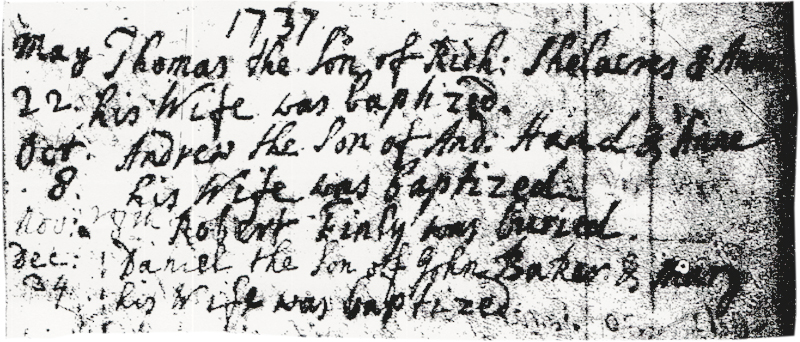 1737.
May Thomas the Son of Rich: Shelacres & Ann
22. his Wife was baptized.
Oct. Andrew the Son of And: Hand & Anne
8. his Wife was baptized.
Nov: Robert Finly was buried.
Dec: Daniel the Son of John Baker & Mary
his Wife was baptized.